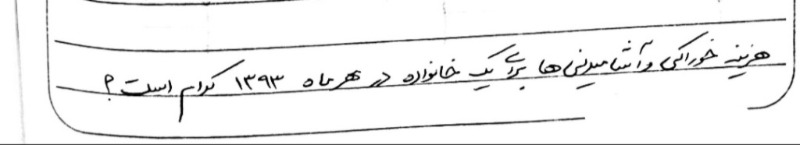 هزینه خوراکی و آشامیدنی ها برای یک خانواده در مهرماه ۱۳۹۳ کدام است؟